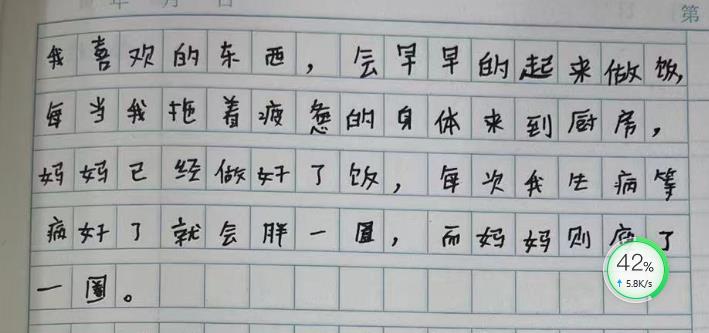 年 月 日 第
我喜欢的东西，会早早的起来做饭，
每当我拖着疲惫的身体来到厨房，
妈妈已经做好了饭，每次我生病等
病好了就会胖一圈，而妈妈则瘦了
一圈。
42%
5.8K/s